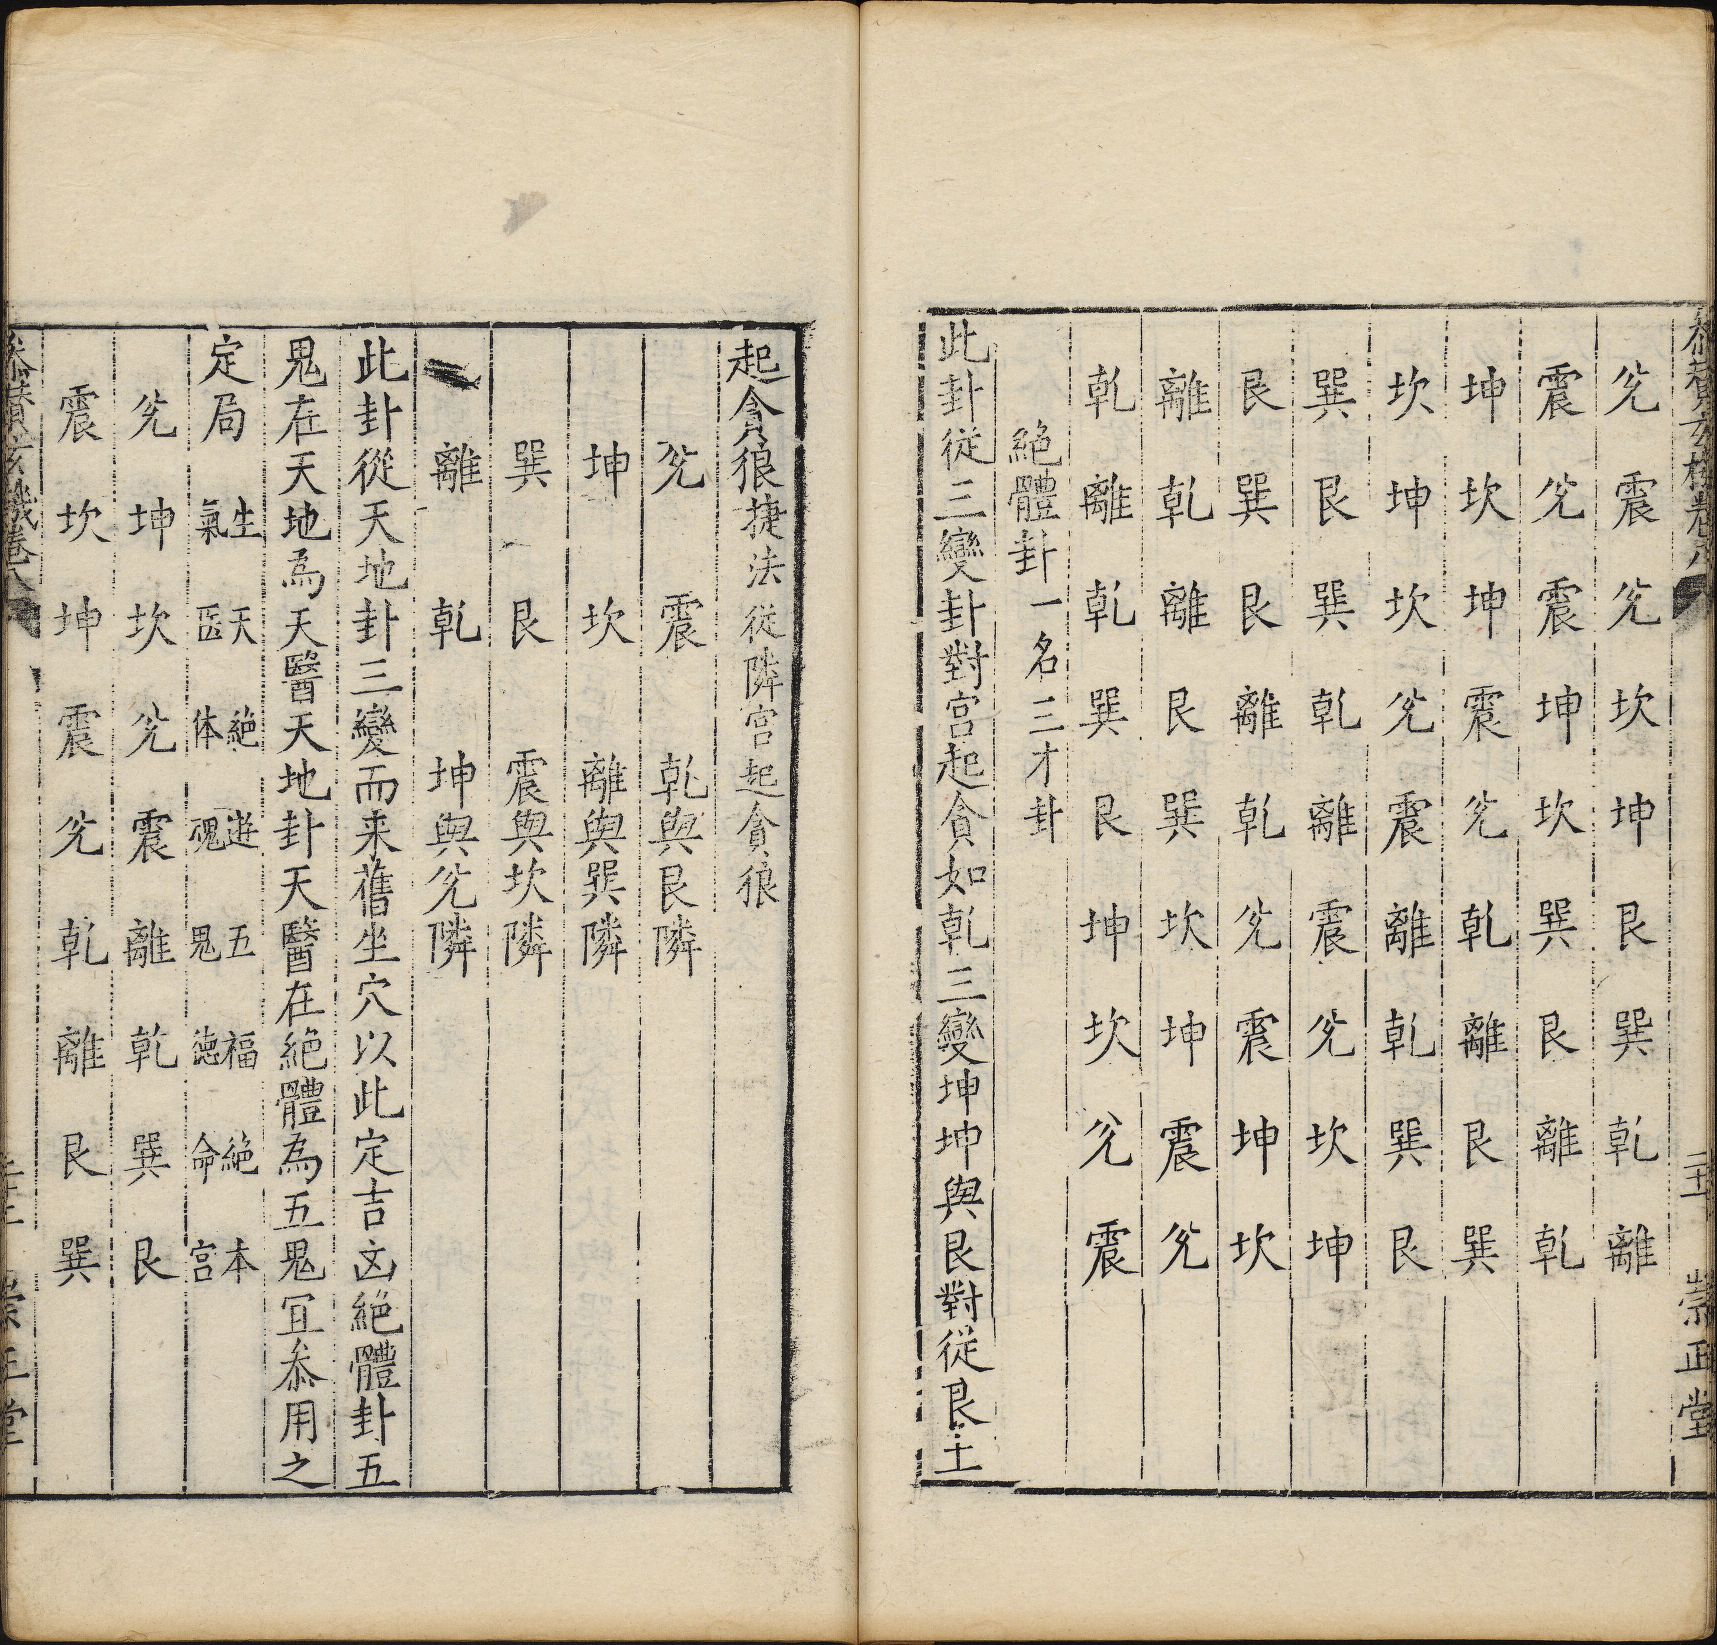 叅賛玄機卷八 崇正堂
兊 震 兊 坎 坤 艮 巽 乾 離
震 兊 震 坤 坎 巽 艮 離 乾
坤 坎 坤 震 兊 乾 離 艮 巽
坎 坤 坎 兊 震 離 乾 巽 艮
巽 艮 巽 乾 離 震 兊 坎 坤
艮 巽 艮 離 乾 兊 震 坤 坎
離 乾 離 艮 巽 坎 坤 震 兊
乾 離 乾 巽 艮 坤 坎 兊 震
絕體卦一名三才卦
此卦從三變卦對宮起貪如乾三變坤坤與艮對從艮主
起貪狼捷法從隣宮起貪狼
兊 震 乾與艮隣
坤 坎 離與巽隣
巽 艮 震與坎隣
離 乾 坤與兊隣
此卦從天地卦三變而来舊坐穴以此定吉凶絕體卦五
鬼在天地為天醫天地卦天醫在絕體為五鬼宜叅用之
定局 生氣 天医 絕体 遊魂 五鬼 福德 絕命 本宮
兊 坤 坎 兊 震 離 乾 巽 艮
震 坎 坤 震 兊 乾 離 艮 巽
叅賛玄機卷八 崇正堂